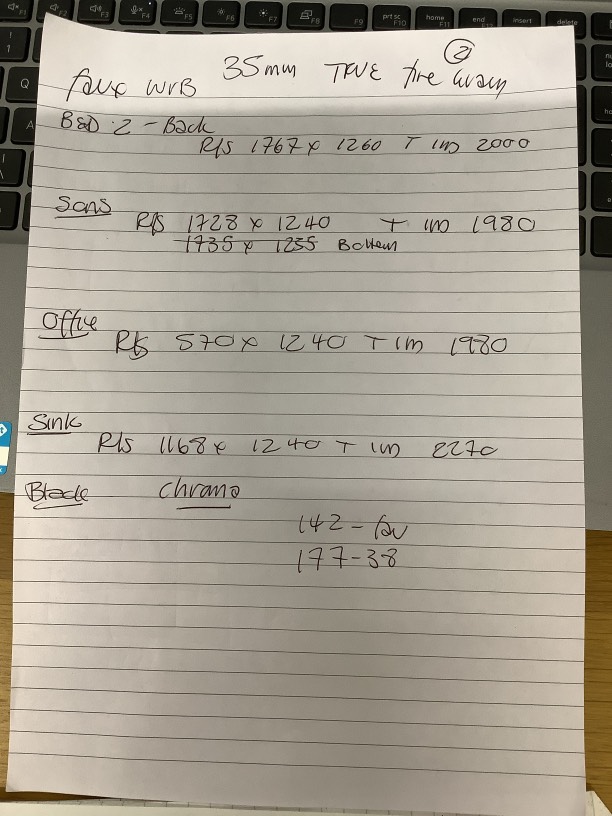 F1
F2
F3
F4
F5
F6
F7
F8
F9
prt sc
F10
home
F11
end
F12
insert
delete
!
1
Q
A
2
faux WVB 35mm TRUE fire Grain
BED 2 - Back
R/S 1767 x 1260 T 1m 2000
Sons
R/S 1728 x 1240 T 1m 1980
1735 x 1255 Bottem
Office
R/S 570 x 1240 T 1m 1980
Sink
R/S 1168 x 1240 T 1m 2270
Blade chrome
142 -
177-38